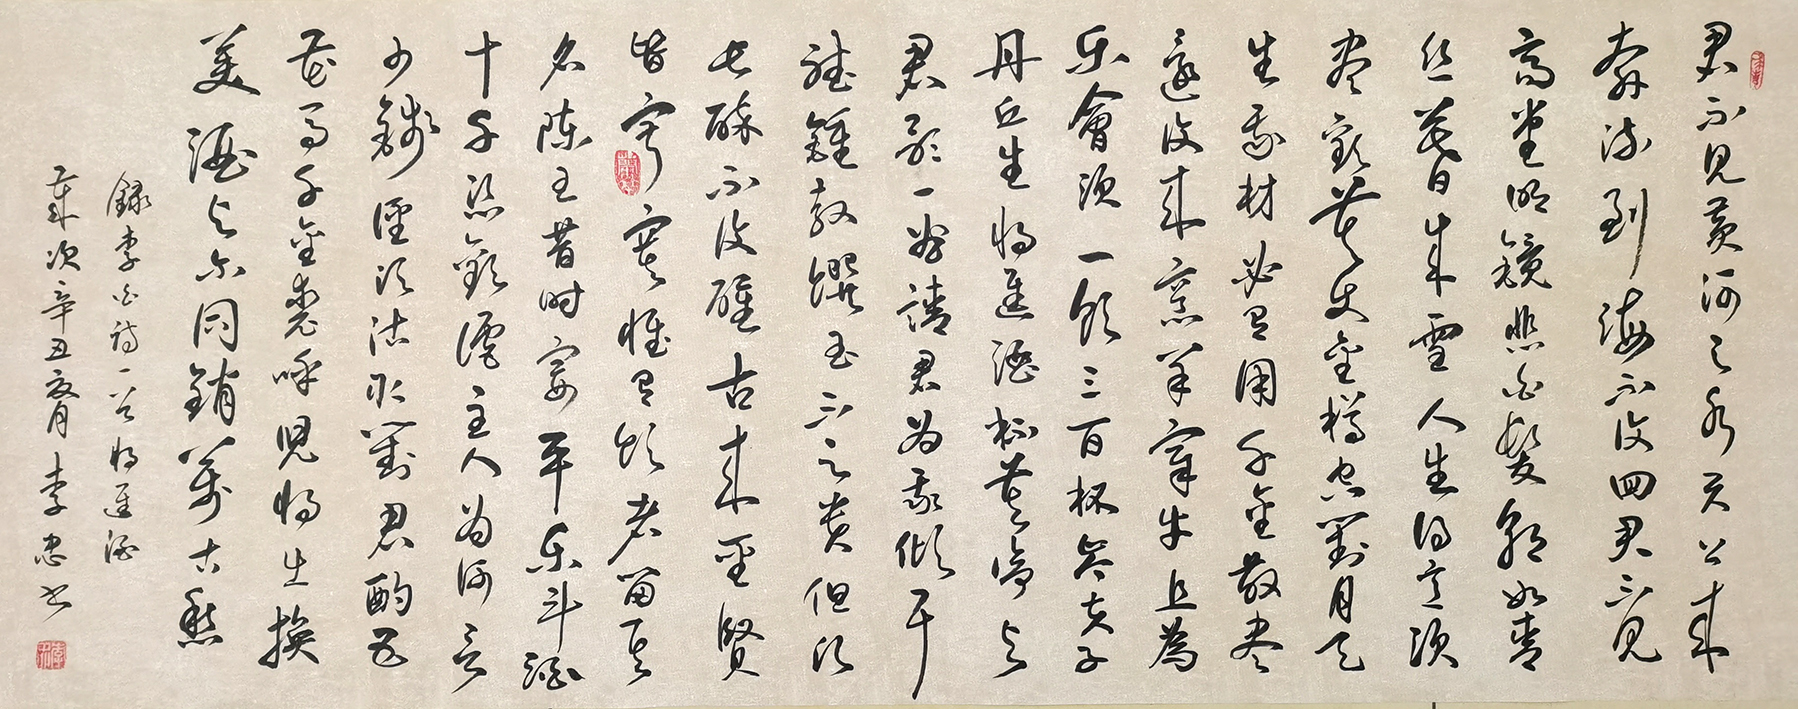 君不见黄河之水天上来
奔流到海不復回君不见
高堂明镜悲白髮朝如青
丝暮成雪人生得意须
尽歡莫使金樽空對月天
生我材必有用千金散尽
還復来烹羊宰牛且為
乐會须一饮三百杯岑夫子
丹丘生将進酒杯莫停与
君歌一曲請君为我倾耳
听鐘鼓饌玉不足贵但願
长醉不復醒古来聖賢
皆寂寞惟有饮者留其
名陈王昔时宴平乐斗酒
十千恣歡谑主人为何言
少錢徑须沽取對君酌五
花马千金裘呼児将出换
美酒与尔同銷萬古愁
錄李白詩一首将進酒
歲次辛丑 李忠书